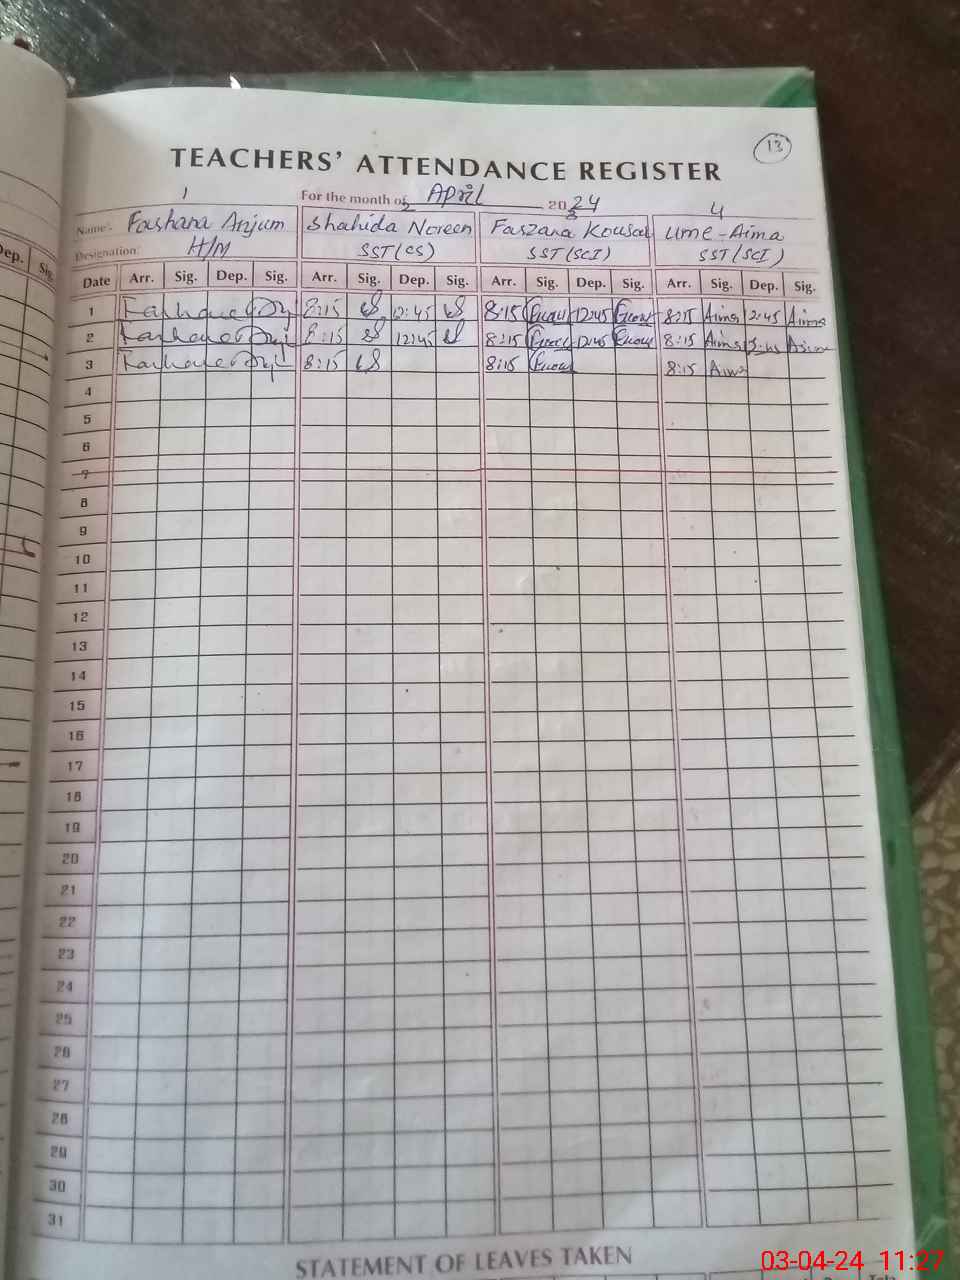 13
TEACHERS' ATTENDANCE REGISTER
For the month of April 2024
1 2 3 4
Name: Farhana Anjum Shahida Noreen Farzana Kousar Ume-Aima
Designation: H/M SST(CS) SST(SCI) SST(SCI)
Dep. Sig.
Date Arr. Sig. Dep. Sig. Arr. Sig. Dep. Sig. Arr. Sig. Dep. Sig. Arr. Sig. Dep. Sig.
1 8:15 12:45 8:15 12:45 8:15 Aima 12:45 Aima
2 8:15 12:45 8:15 12:45 8:15 Aima 12:45 Aima
3 8:15 8:15 8:15 Aima
4
5
6
7
8
9
10
11
12
13
14
15
16
17
18
19
20
21
22
23
24
25
26
27
28
29
30
31
STATEMENT OF LEAVES TAKEN
03-04-24 11:27